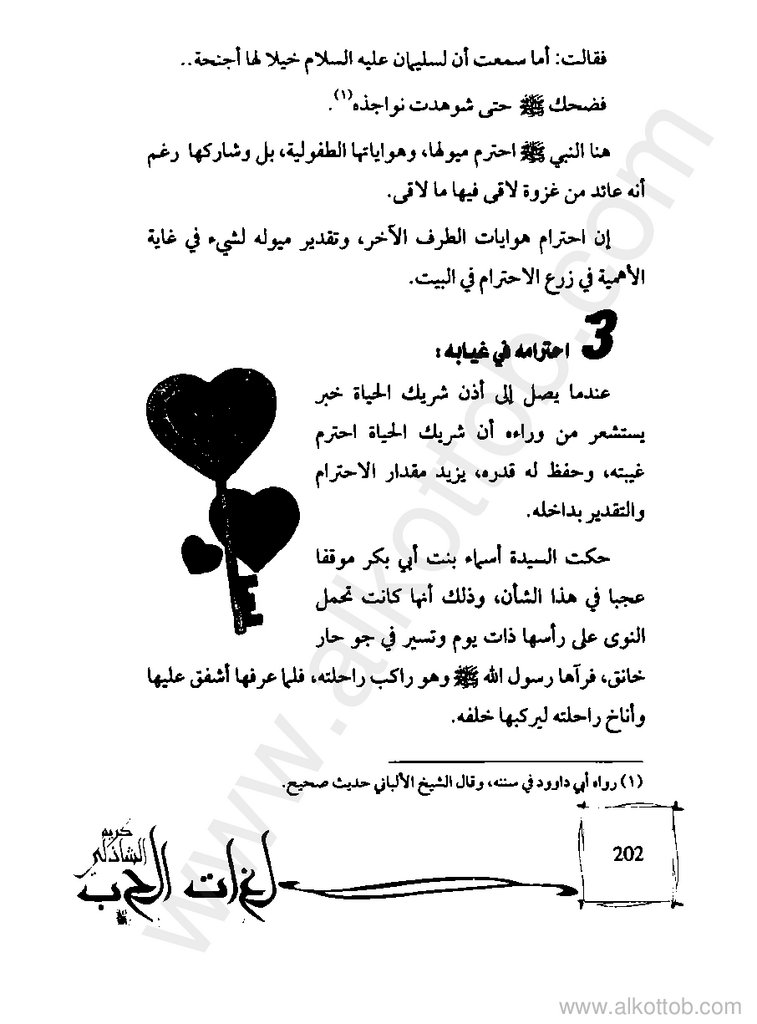 فقالت: أما سمعت أن لسليمان عليه السلام خيلا لها أجنحة..
فضحك ﷺ حتى شوهدت نواجذه(١).
هنا النبي ﷺ احترم ميولها، وهواياتها الطفولية، بل وشاركها رغم
أنه عائد من غزوة لاقى فيها ما لاقى.
إن احترام هوايات الطرف الآخر، وتقدير ميوله لشيء في غاية
الأهمية في زرع الاحترام في البيت.
3 احترامه في غيابه:
عندما يصل إلى أذن شريك الحياة خبر
يستشعر من وراءه أن شريك الحياة احترم
غيبته، وحفظ له قدره، يزيد مقدار الاحترام
والتقدير بداخله.
حكت السيدة أسماء بنت أبي بكر موقفا
عجبا في هذا الشأن، وذلك أنها كانت تحمل
النوى على رأسها ذات يوم وتسير في جو حار
خانق، فرآها رسول الله ﷺ وهو راكب راحلته، فلما عرفها أشفق عليها
وأناخ راحلته ليركبها خلفه.
(١) رواه أبي داوود في سننه، وقال الشيخ الألباني حديث صحيح.
202
كريم
الشاذلي
لغات الحب
www.alkottob.com
www.alkottob.com